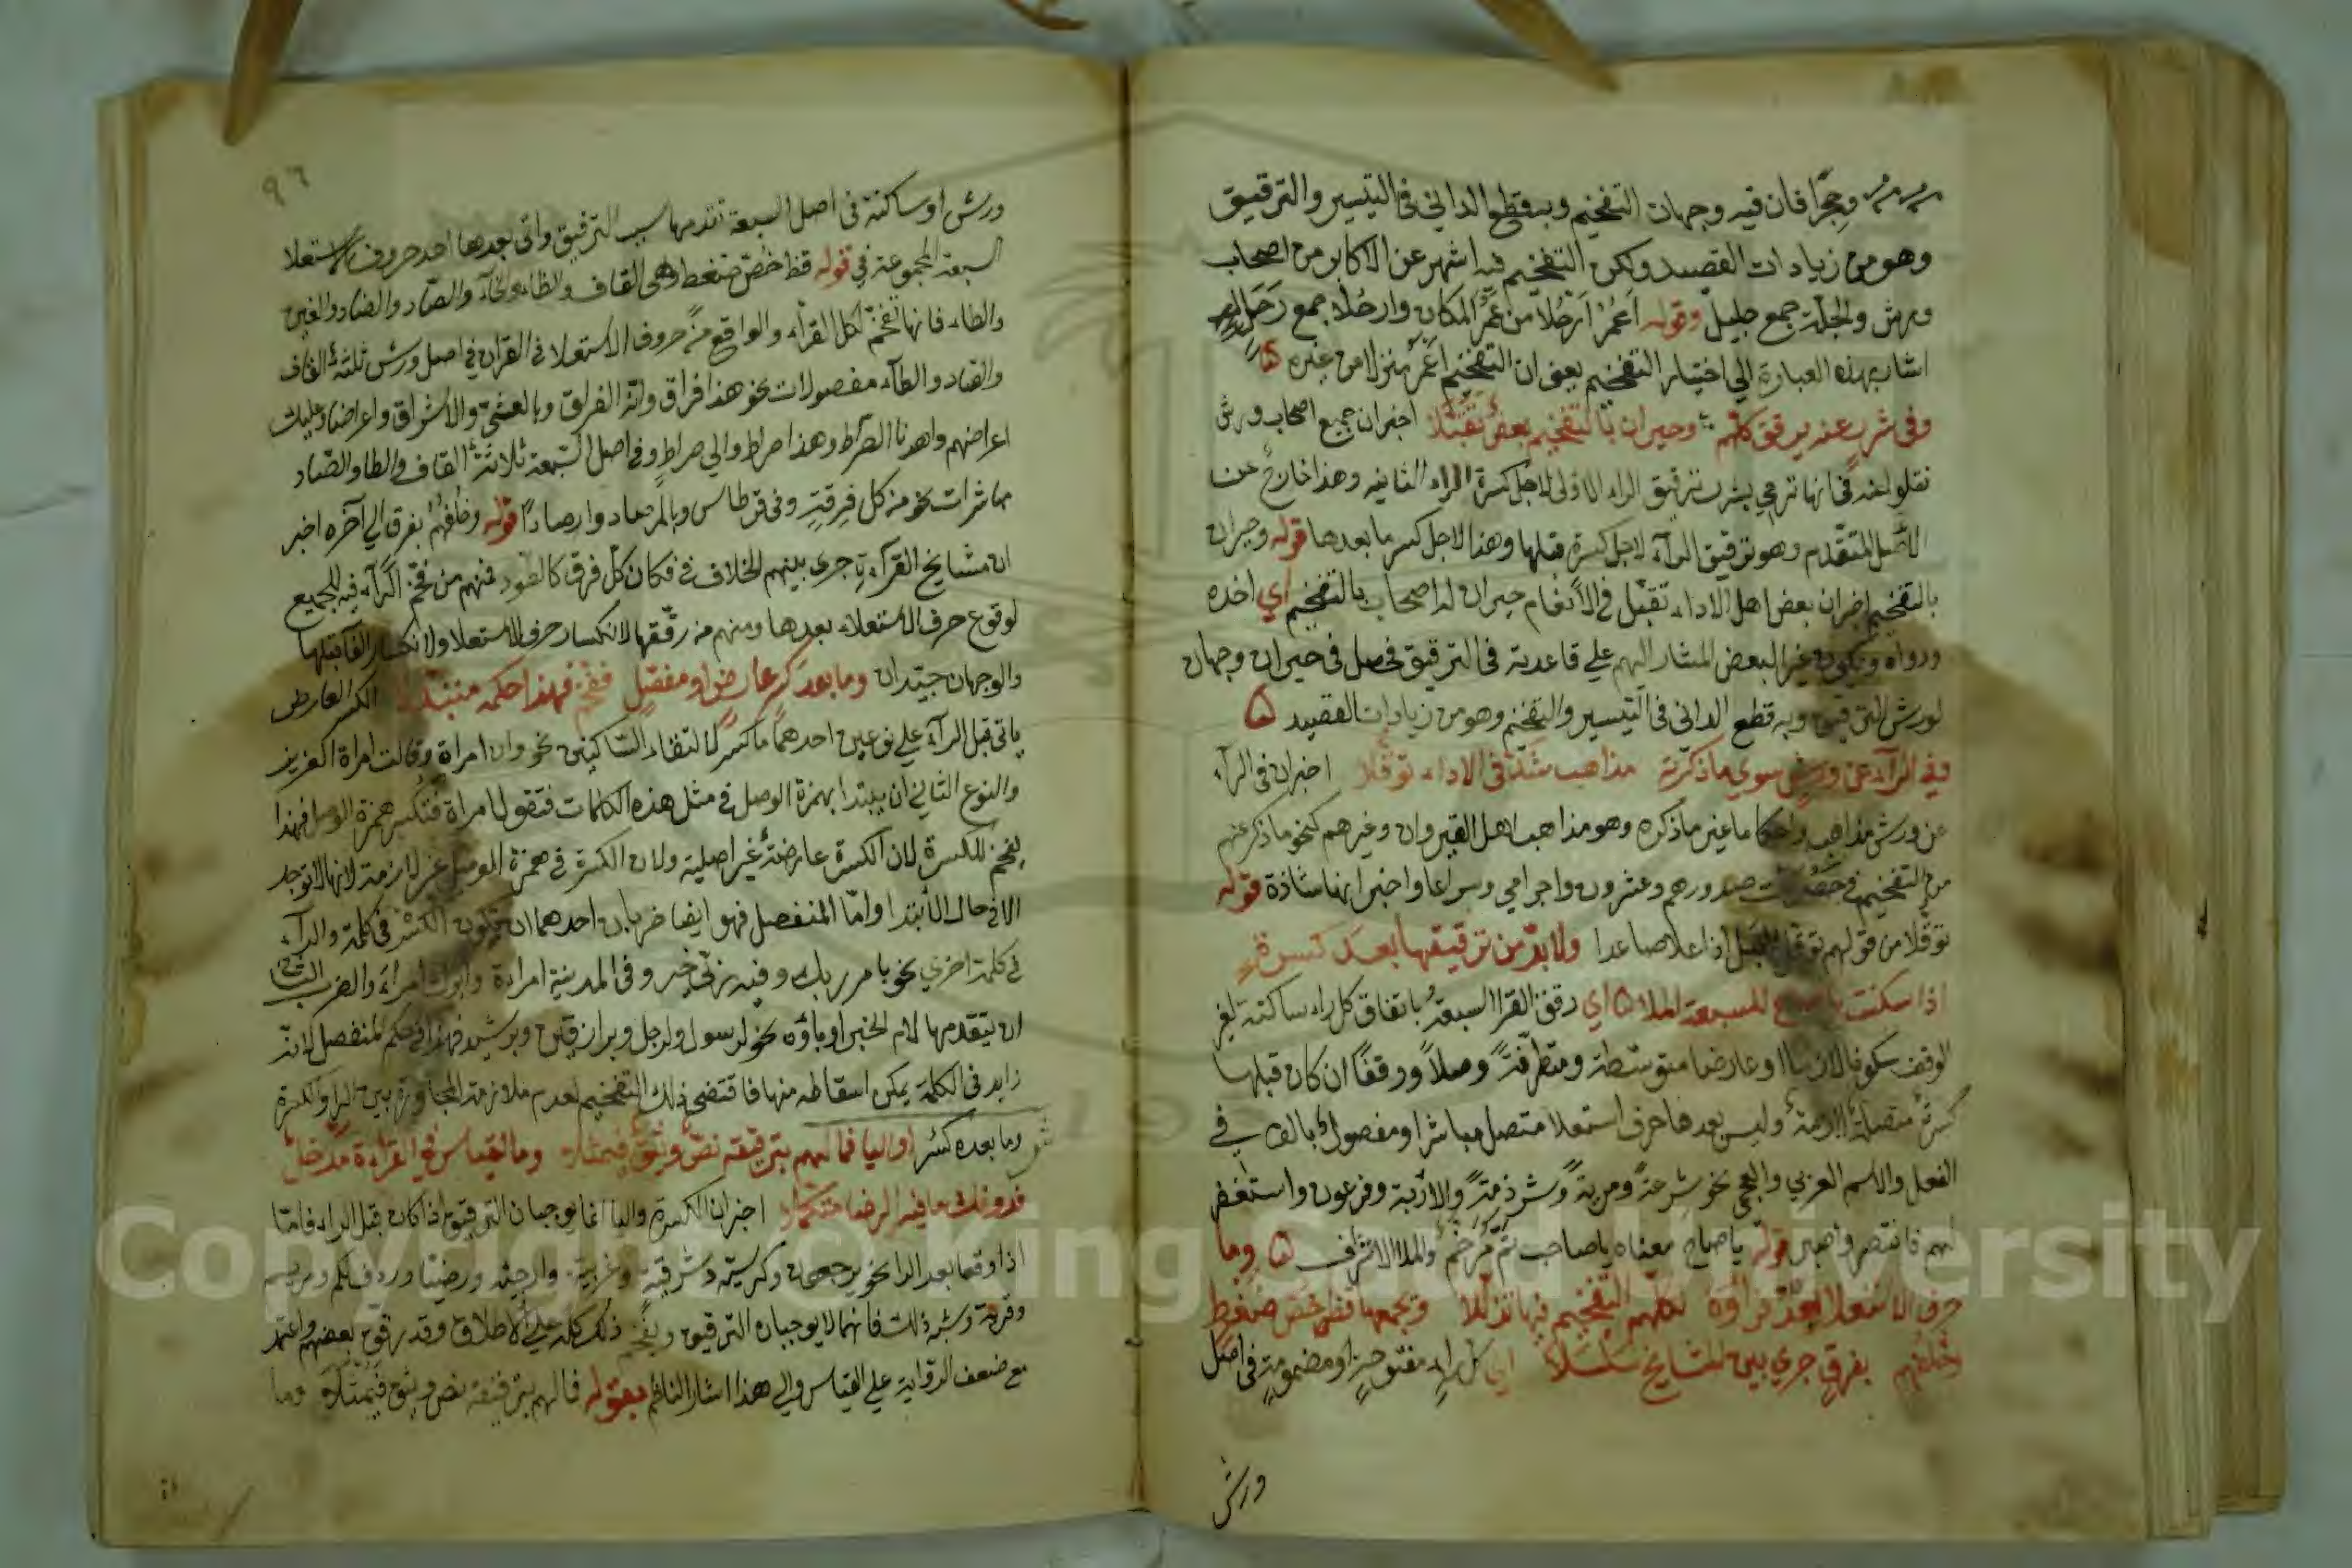 وحجرا فان فيه وجهان التفخيم وبه قطع الداني في التيسير والترقيق
وهو من زيادات القصيد ولكن التفخيم فيه اشهر عن الاكابر من اصحاب
ورش والجلة جمع جليل وقوله اعمر ارحلا من عمر المكان وارحلا جمع رحل
اشار بهذه العبارة الي اختيار التفخيم يعني ان التفخيم اعمر منزلا من غيره
وفي شرر عنه يرقق كلهم وحيران بالتفخيم بعض تقبلا اخبر ان جميع اصحاب ورش
نقلوا عنه في انها ترمي بشرر ترقيق الراء الاولى لاجل كسرة الراء الثانيه وهذا خارج عن
الاصل المتقدم وهو ترقيق الراء لاجل كسرة قبلها وهذا لاجل كسر ما بعدها قوله وحيران
بالتفخيم اخبر ان بعض اهل الاداء تقبل في الانعام حيران له اصحاب بالتفخيم اي اخذه
ورواه ويكون غير البعض المشار اليهم علي قاعدته في الترقيق فحصل في حيران وجهان
لورش الترقيق وبه قطع الداني في التيسير والتفخيم وهو من زيادات القصيد
وفي الراء عن ورش سوي ما ذكرته مذاهب شذت في الاداء توقلا اخبر ان في الراء
عن ورش مذاهب واحكاما غير ما ذكره وهو مذاهب اهل القيروان وغيرهم كنحو ما ذكر عنهم
من التفخيم في حصرت صدورهم وعشرون واجرامي وسراعا واخبر انها شاذة قوله
توقلا من قولهم توقل الجبل اذا علا صاعدا ولا بد من ترقيقها بعد كسرة
اذا سكنت يا صاح للسبعة الملا اي رقق القرا السبعة باتفاق كل راء ساكنة لغير
الوقف سكونا لازما او عارضا متوسطة ومتطرفة وصلا ووقفا ان كان قبلها
كسرة متصلة لازمة وليس بعدها حرف استعلا متصل مباشرا ومفصولا بالف في
الفعل والاسم العربي والعجمي نحو شرعة ومرية وشرذمة والاربة وفرعون واستغفر
لهم فانتصر واصبر قوله يا صاح معناه يا صاحب ثم رخم والملا الاشراف وما
حرف الاستعلا بعد فراؤه لكلهم التفخيم فيها تذللا ويجمعها قظ خص ضغط
وخلفهم بفرق جري بين المشايخ سلسلا اي كل راء مفتوحة او مضمومة في اصل
ورش
٩٦
ورش او ساكنة في اصل السبعة تقدمها سبب الترقيق واتى بعدها احد حروف الاستعلا
السبعة المجموعة في قوله قظ خص ضغط وهي القاف والظاء والخاء والصاد والضاد والغين
والطاء فانها تفخم لكل القراء والواقع من حروف الاستعلا في القران في اصل ورش ثلثة القاف
والضاد والطاء مفصولات نحو هذا فراق وانه الفراق وبالعشي والاشراق واعراضا وعليك
اعراضهم واهدنا الصراط وهذا صراط والي صراط وفي اصل السبعة ثلاثة القاف والطا والصاد
مباشرات نحو من كل فرقة وفي قرطاس وبالمرصاد وارصادا قوله وخلفهم بفرق الي آخره اخبر
ان مشايخ القراءة جري بينهم الخلاف في فكان كل فرق كالطود فمنهم من فخم الراء فيه للجميع
لوقوع حرف الاستعلاء بعدها ومنهم من رققها لانكسار حرف الاستعلا ولانكسار الفا قبلها
والوجهان جيدان وما بعد كسر عارض او مفصل ففخم فهذا حكمه متبذلا الكسر العارض
ياتي قبل الراء علي نوعين احدهما ما كسر لالتقاء الساكنين نحو وان امراة وقالت امراة العزيز
والنوع الثاني ان يبتدا بهمزة الوصل في مثل هذه الكلمات فتقول امراة فتكسر همزة الوصل فهذا
يفخم للكسرة لان الكسرة عارضة غير اصلية ولان الكسرة في همزة الوصل غير لازمة لانها لا توجد
الا في حال الابتدا واما المنفصل فهو ايضا ضربان احدهما ان تكون الكسر في كلمة والراء
في كلمة اخري نحو بامر ربك وفيه ربي خير وفي المدينة امراة وابوك امراء والضرب الثاني
ان يتقدمها لام الجر او باؤه نحو لرسول ولرجل وبرازقين وبرشيد فهذا في حكم المنفصل لانه
زايد في الكلمة يمكن اسقاطه منها فاقتضى ذلك التفخيم لعدم ملازمة المجاورة بين الرا والكسرة
وما بعده كسر او اليا فما لهم بترقيقه نص وثيق فيمثلا وما لقياس في القراءة مدخل
فدونك ما فيه الرضا متكفلا اخبر ان الكسرة واليا انما يوجبان الترقيق اذا كان قبل الراء فاما
اذا وقعا بعد الرا نحو يرجعون وكرسيه وشرقية وغربية وارجئه ورضينا وردف لكم ومريم
وقرية وشبه ذلك فانهما لا يوجبان الترقيق ويفخم ذلك كله علي الاطلاق وقد رقق بعضهم واعتمد
مع ضعف الرواية علي القياس والي هذا اشار الناظم بقوله فما لهم بترقيقه نص وثيق فيمثلا وما